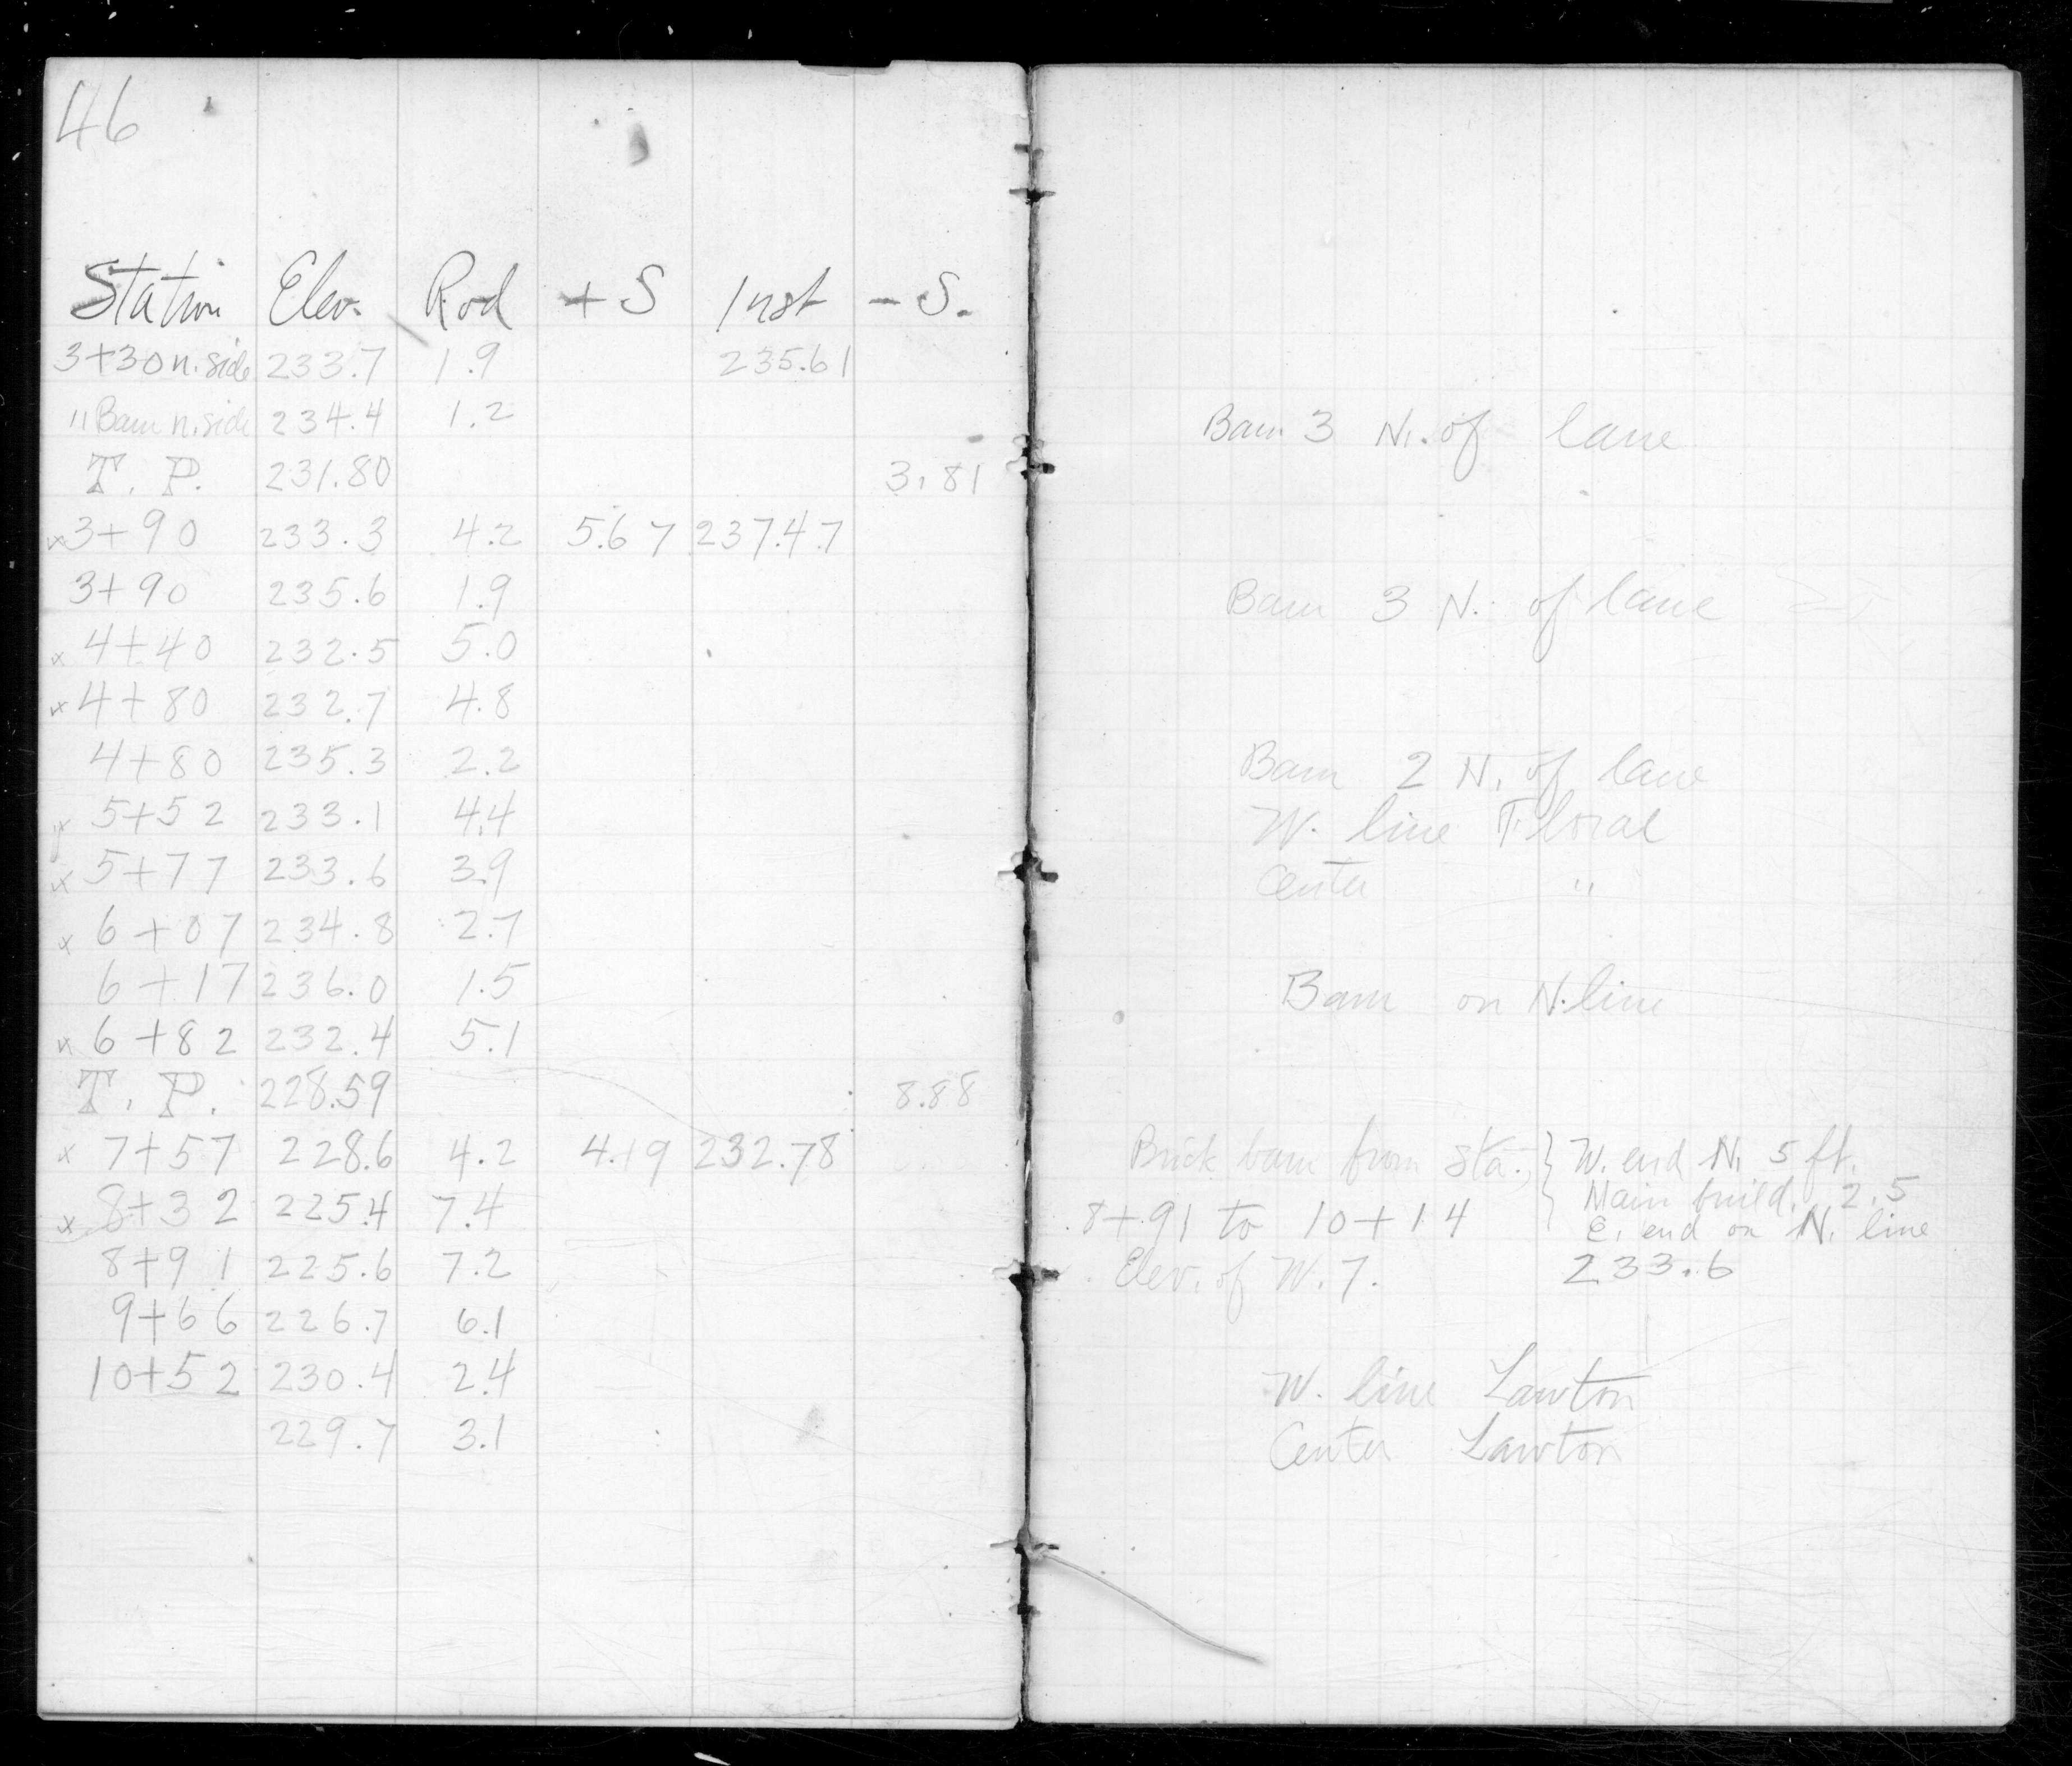 46
Station Elev. Rod + S Inst - S.
3+30 n. side 233.7 1.9 235.61
" Barn n. side 234.4 1.2 Barn 3 N. of lane
T. P. 231.80 3.81
x 3+90 233.3 4.2 5.67 237.47
3+90 235.6 1.9 Barn 3 N. of lane
x 4+40 232.5 5.0
x 4+80 232.7 4.8
4+80 235.3 2.2 Barn 2 N. of lane
x 5+52 233.1 4.4 W. line Floral
x 5+77 233.6 3.9 Center "
x 6+07 234.8 2.7
6+17 236.0 1.5 Barn on N. line
x 6+82 232.4 5.1
T. P. 228.59 8.88
x 7+57 228.6 4.2 4.19 232.78 Brick barn from Sta. } W. end N. 5 ft.
x 8+32 225.4 7.4 8+91 to 10+14 Main build. 2.5
E. end on N. line
8+91 225.6 7.2 Elev. of W. T. 233.6
9+66 226.7 6.1
10+52 230.4 2.4 W. line Lawton
229.7 3.1 Center Lawton